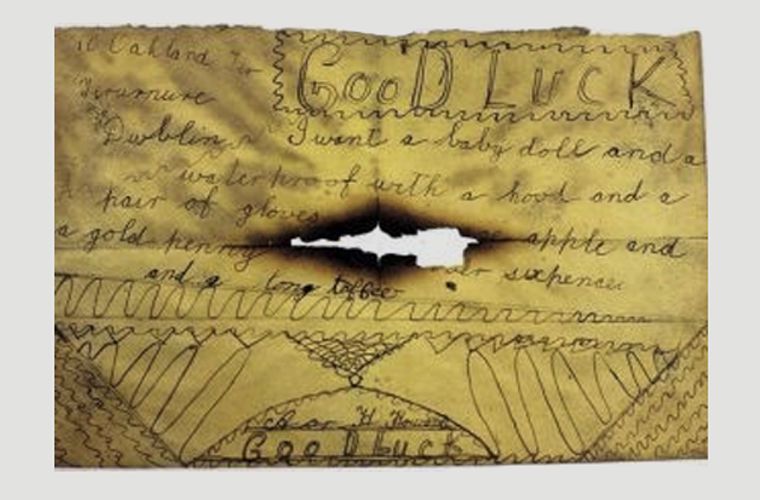 GOOD LUCK
Oakland
Dublin
I want a baby doll and a
waterproof with a hood and a
pair of gloves apple and
a gold penny sixpence
and a long toffee
A or H Howard
Good Luck